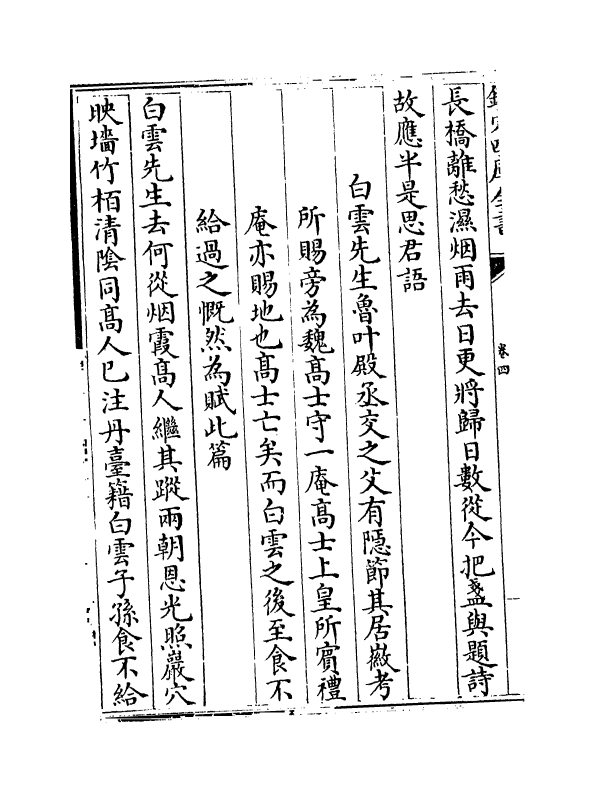 欽定四庫全書
卷四
長橋離愁濕烟雨去日更將歸日數從今把盞與題詩
故應半是思君語
白雲先生魯叶殿丞交之父有隱節其居徽考
所賜旁為魏髙士守一庵髙士上皇所賓禮
庵亦賜地也髙士亡矣而白雲之後至食不
給過之慨然為賦此篇
白雲先生去何從烟霞髙人繼其蹤兩朝恩光照巖穴
映墻竹栢清陰同髙人已注丹臺籍白雲子孫食不給